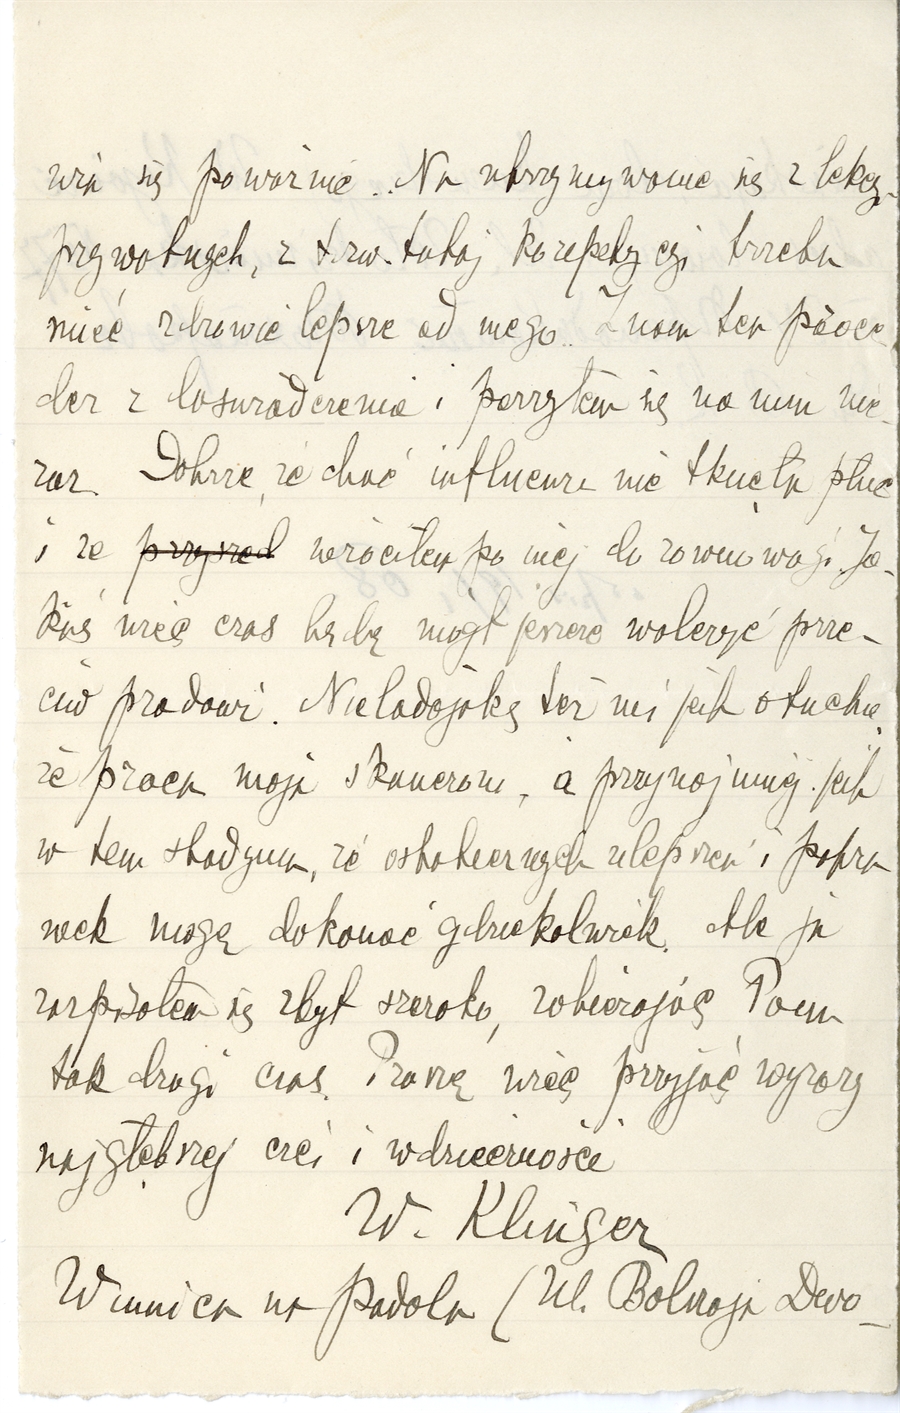 wia się poważnie. Na utrzymywanie się z lekcyj
prywatnych, z t.zw. tutaj korepetycyj trzeba
mieć zdrowie lepsze od mego. Znam ten proce-
der z doświadczenia i parzyłem się na nim nie
raz. Dobrze, że choć influenza nie tknęła płuc
i że przyszed wróciłem po niej do równowagi. Ja-
kiś więc czas będę mógł jeszcze walczyć prze-
ciw prądowi. Nieladajaką też mi jest otuchą,
że praca moja skończona, a przynajmniej jest
w tem stadyum, że ostatecznych ulepszeń i popra
wek mogę dokonać gdziekolwiek. Ale ja
rozpisałem się zbyt szeroko, zabierając Panu
tak drogi czas. Proszę więc przyjąć wyrazy
najgłębszej czci i wdzięczności
W. Klinger
Winnica na Podolu (Ul. Bolszaja Dwo-